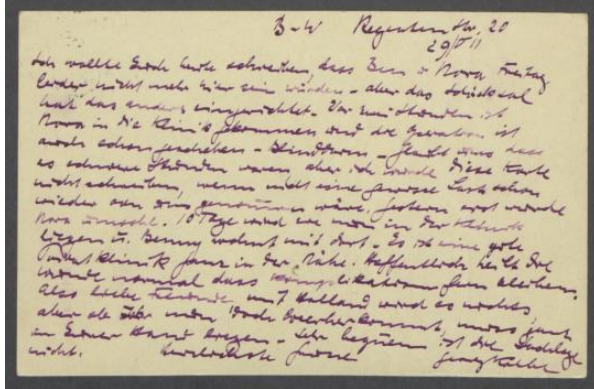 B-W Regentenstr. 20
29/VII
Ich wollte Euch heute schreiben, dass Ben u Nora Freitag
leider nicht mehr hier sein würden - aber das Schicksal
hat das anders eingerichtet. Vor Stunden ist
Nora in die Klinik gekommen und die Operation ist
auch schon geschehen - Blinddarm - glaubt uns dass
es schwere Stunden waren, aber ich würde diese Karte
nicht schreiben, wenn nicht eine gewisse Last schon
wieder von uns genommen wäre. Gestern erst wurde
Nora 10 Tage wird sie nun in der Klinik
liegen u. Benny wohnt mit dort. Es ist eine gute
Klinik ganz in der Nähe. Hoffentlich heilt die
Wunde normal dass Komplikationen fern bleiben.
Also liebe Freunde mit Holland wird es
aber ob man doch muss ganz
in Eurer Hand liegen. Sehr bequem ist die Sachlage
nicht. herzlichste Grüsse Georg Kolbe